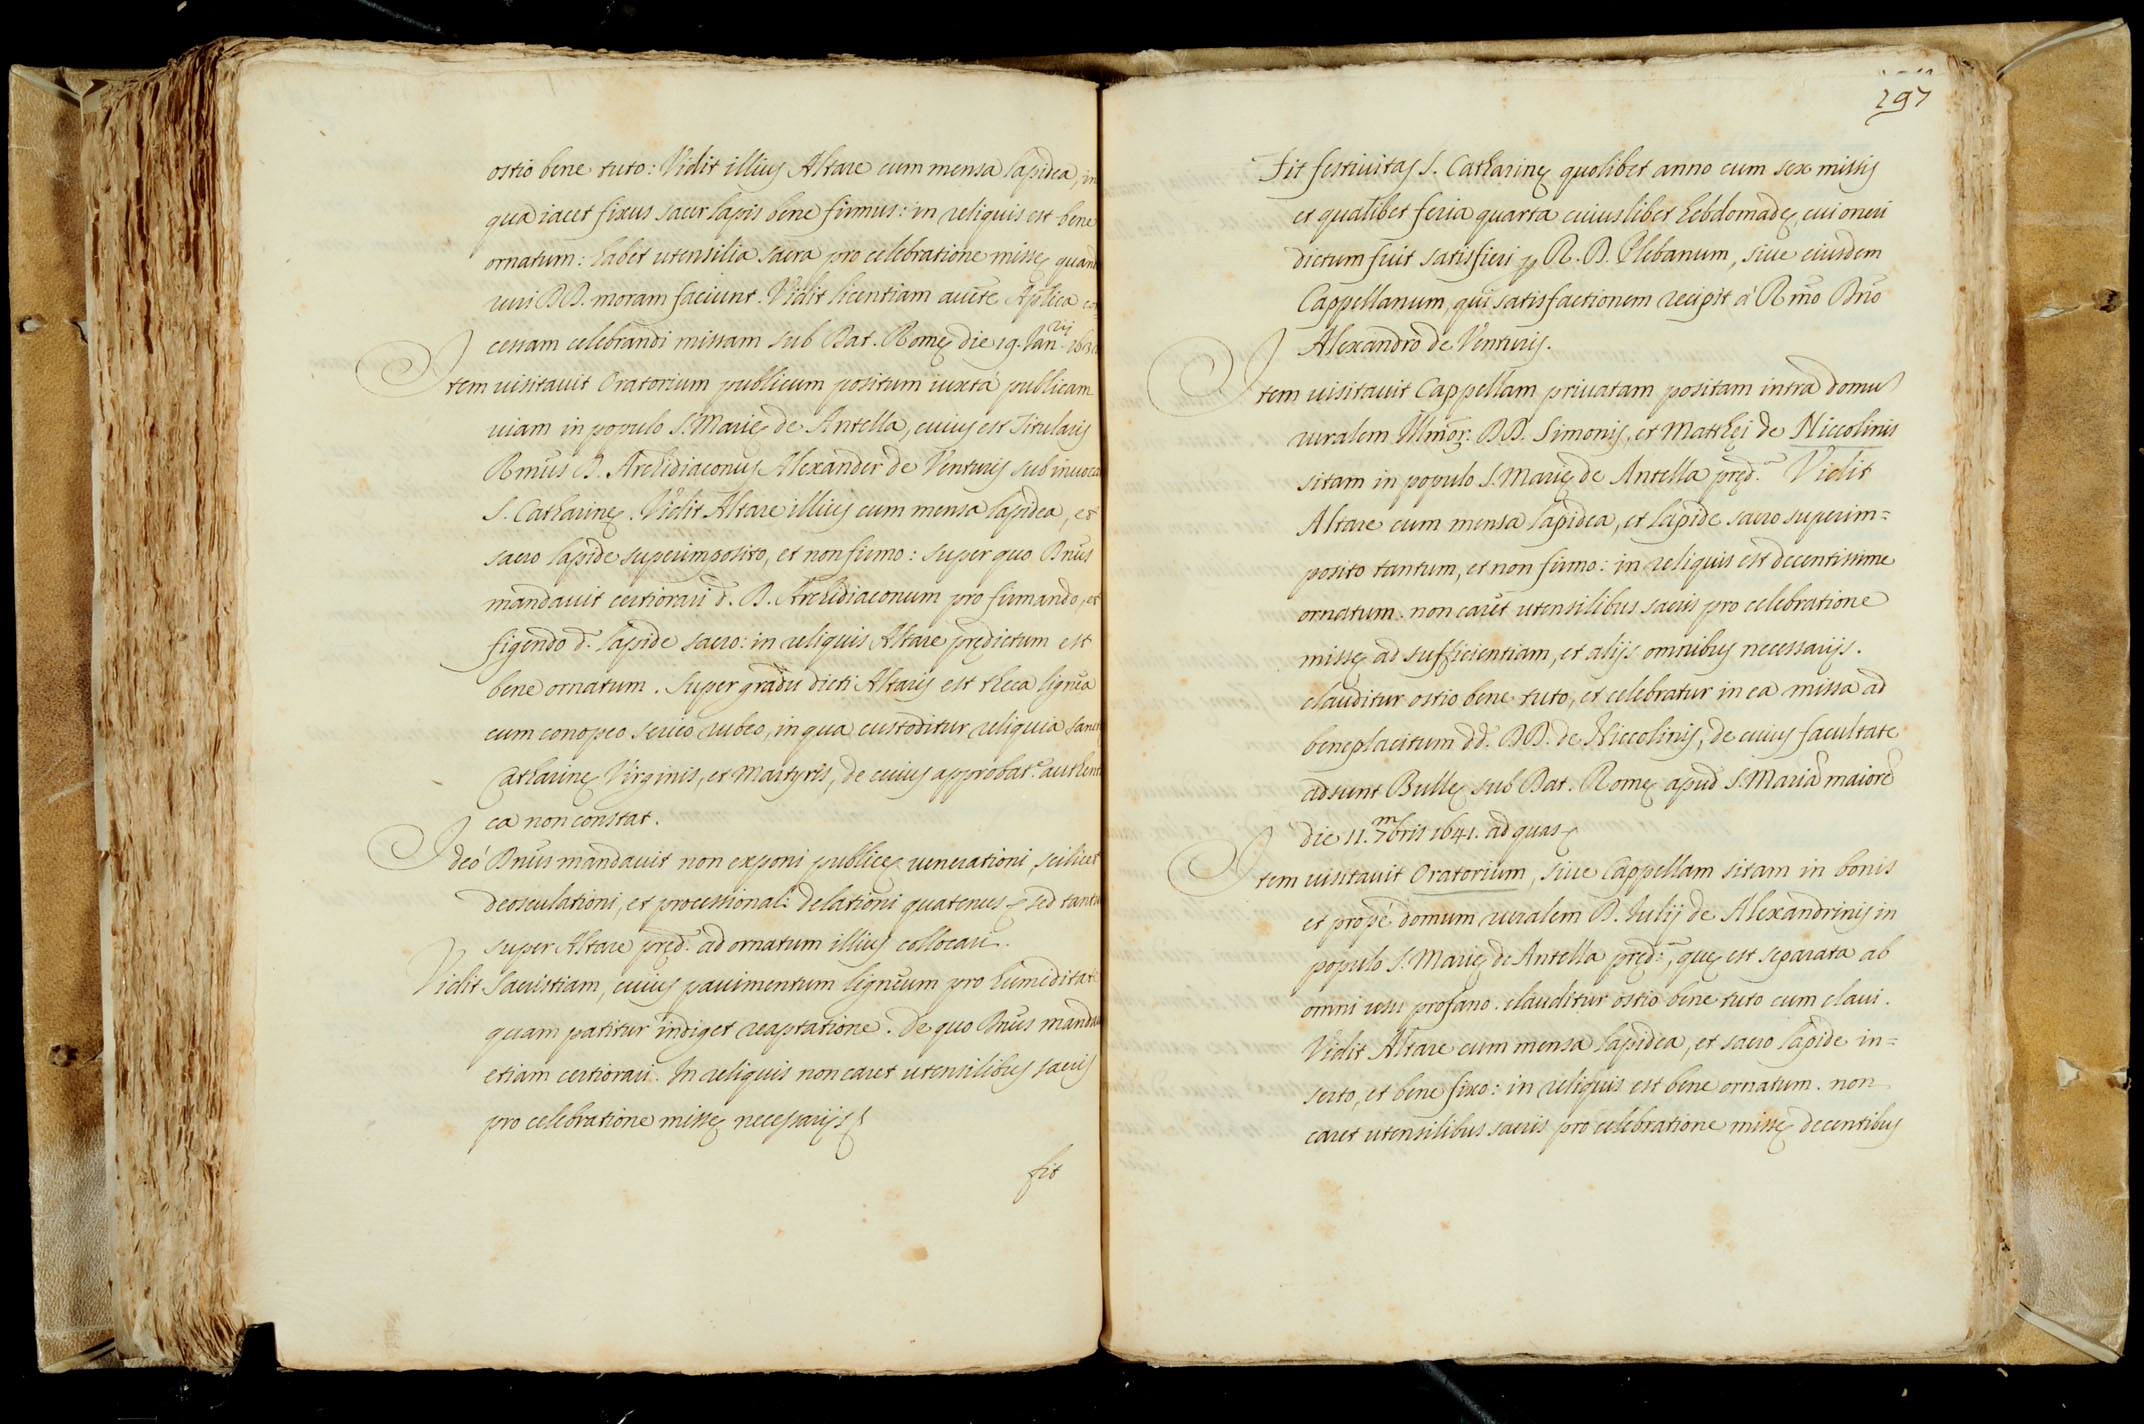 ostio bene tuto: Vidit illius Altare cum mensa lapidea, in
qua iacet fixus sacer lapis bene firmus: in reliquis est bene
ornatum: habet utensilia sacra pro celebratione missę quand
ruri DD. moram faciunt. Vidit licentiam aucte Aplica con
cessam celebrandi missam sub Dat. Romę die 19. Ianrij
Item uisitauit Oratorium publicum positum iuxtà publicam
uiam in populo S. Marię de Antella, cuius est Titularis
Rmus D. Archidiaconus Alexander de Venturis sub inuoca
S. Catharinę. Vidit Altare illius cum mensa lapidea, et
sacro lapide superimposito, et non firmo: super quo Dnus
mandauit certiorari d. D. Archidiaconum pro firmando, et
figendo d. lapide sacro: in reliquis Altare prędictum est
bene ornatum. Super gradu dicti Altaris est theca lignea
cum conopeo serico rubeo, in qua custoditur reliquia sanct
Catharinę Virginis, et Martyris, de cuius approbat.e authenti
ca non constat.
Ideò Dnus mandauit non exponi publicę uenerationi, scilicet
deosculationi, et processionali delationi quatenus sed tantu
super Altare pręd. ad ornatum illius collocari.
Vidit Sacristiam, cuius pauimentum ligneum pro humiditate
quam patitur indiget reaptatione. De quo Dnus manda
etiam certiorari. In reliquis non caret utensilibus sacris
pro celebratione missę necessarijs
fit
297
Fit festiuitas S. Catharinę quolibet anno cum sex missis
et qualibet feria quarta cuiuslibet hebdomadę, cui oneri
dictum fuit satisfieri p R. D. Plebanum, siue eiusdem
Cappellanum, qui satisfactionem recipit à Rmo Dno
Alexandro de Venturis.
Item uisitauit Cappellam priuatam positam intra domu
ruralem Illmor. DD. Simonis, et Matthęi de Niccolinis
sitam in populo S. Marię de Antella pręd. Vidit
Altare cum mensa lapidea, et lapide sacro superim=
posito tantum, et non firmo: in reliquis est decentissime
ornatum. non caret utensilibus sacris pro celebratione
missę ad sufficientiam, et alijs omnibus necessarijs.
clauditur ostio bene tuto, et celebratur in ea missa ad
beneplacitum dd. DD. de Niccolinis, de cuius facultate
adsunt Bullę sub Dat. Romę apud S. Mariā maiorē
die 11. 7mbris 1641. ad quas
Item uisitauit Oratorium, siue Cappellam sitam in bonis
et propè domum ruralem D. Iulij de Alexandrinis in
populo S. Marię de Antella pręd., quę est separata ab
omni usu profano. clauditur ostio bene tuto cum claui.
Vidit Altare cum mensa lapidea, et sacro lapide in=
serto, et bene fixo: in reliquis est bene ornatum. non
caret utensilibus sacris pro celebratione missę decentibus